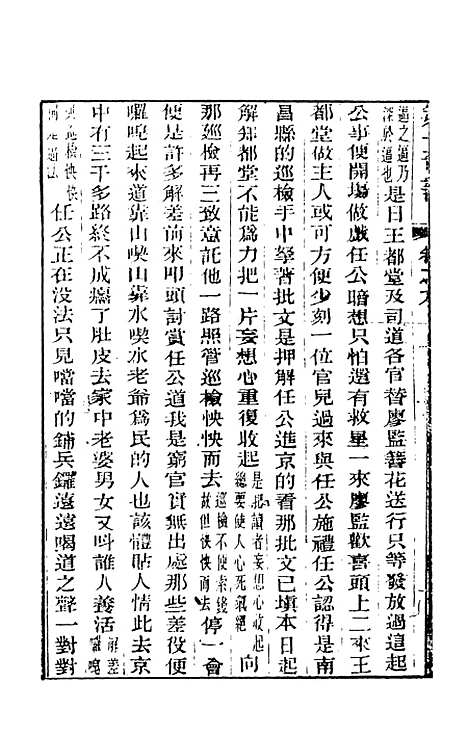 逼之逼乃
深於逼也是日王都堂及司道各官替廖監善花送行只等發放過這起
公事便開場做戲任公暗想只怕還有救星一來廖監歡喜頭上二來王
都堂做主人或可方便少刻一位官兒過來與任公施禮任公認得是南
昌縣的巡檢手中拏著批文是押解任公進京的看那批文已填本日起
解知都堂不能爲力把一片妄想心重復收起是把讀者妄想心收起
總要使人心死氣絕向
那巡檢再三致意託他一路照管巡檢怏怏而去巡檢不便索錢
故但怏怏而去停一會
便是許多解差前來叩頭討賞任公道我是窮官實無出處那些差役便
囉唣起來道靠山喫山靠水喫水老爺爲民的人也該體貼人情此去京
中有三千多路終不成癟了肚皮去家中老婆男女又呌誰人養活解差
囉唣
巡檢怏怏
是逼法任公正在没法只見噹噹的鋪兵鑼遠遠喝道之聲一對對